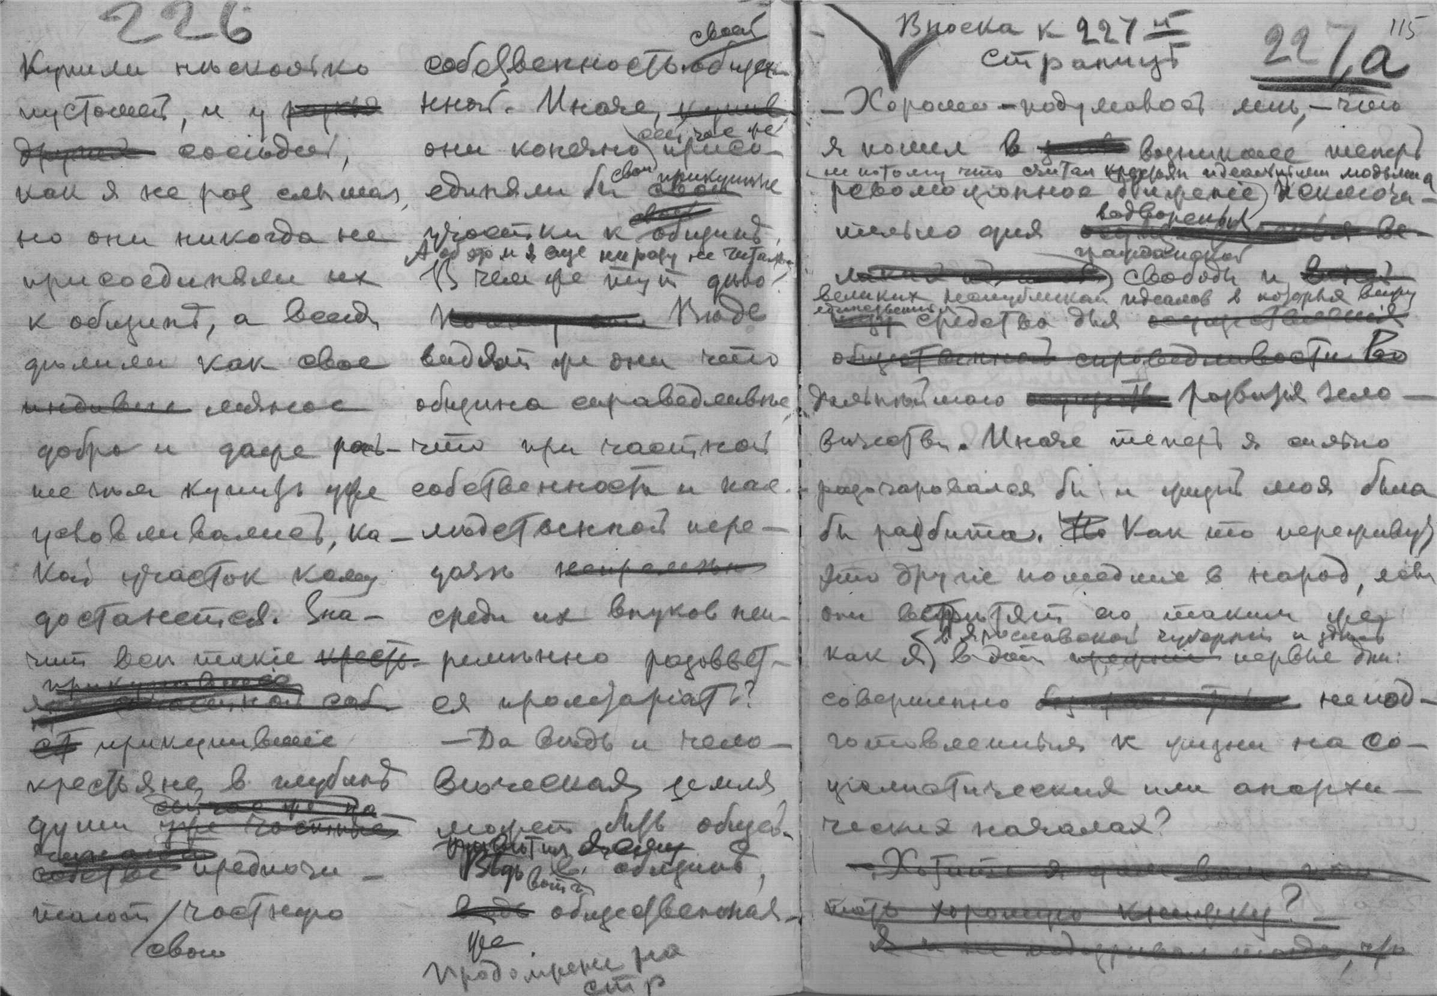 226
Купили нѣсколько
пустошей, и у
сосѣдей,
как я не раз слышал,
но они никогда не
присоединяли их
к общинѣ, а всегда
дѣлили как свое
личное
добро и даже рань-
ше чѣм купить уже
условливались, ка-
кой участок кому
достанется. Зна-
чит все такіе
прикупившіе
крестьяне в глубинѣ
души
предпочи-
тают частную
свою
своей
собственность общин-
ной. Иначе,
сейчас же
они конечно присо-
свои прикупные
единяли бы
участки к общинѣ.
А об этом я еще ни разу не читал
В чем же тут дѣло?
Вѣдь
видят же они что
община справедливѣе
что при частной
собственности и нас-
лѣдственной пере-
дачѣ
среди их внуков неп-
ремѣнно разовьет-
ся пролетаріат?
— Да вѣдь и чело-
вѣческая земля
может быть общей
Вѣдь в общинѣ,
общественная
же
Продолжение на
стр
Вноска к 227 й
страницѣ
227а
115
— Хорошо — подумалось мнѣ, — что
я пошел в возникшее теперь
не потому что считал крестьян идеальными людьми а
революціонное движеніе исключи-
тельно для
водворенья
гражданской
свободы и
великих республикан идеалов в которых вижу
единственное
средство для
дальнѣйшаго развитія чело-
вѣчества. Иначе теперь я сильно
разочаровался бы и жизнь моя была
бы разбита. Как то переживут
это другіе пошедшіе в народ, если
они встрѣтят то, таким же
в Ярославской губерніи и здѣсь
как я в первые дни:
совершенно непод-
готовленным к жизни на со-
ціалистических или анархи-
ческих началах?
хорошую книжку?